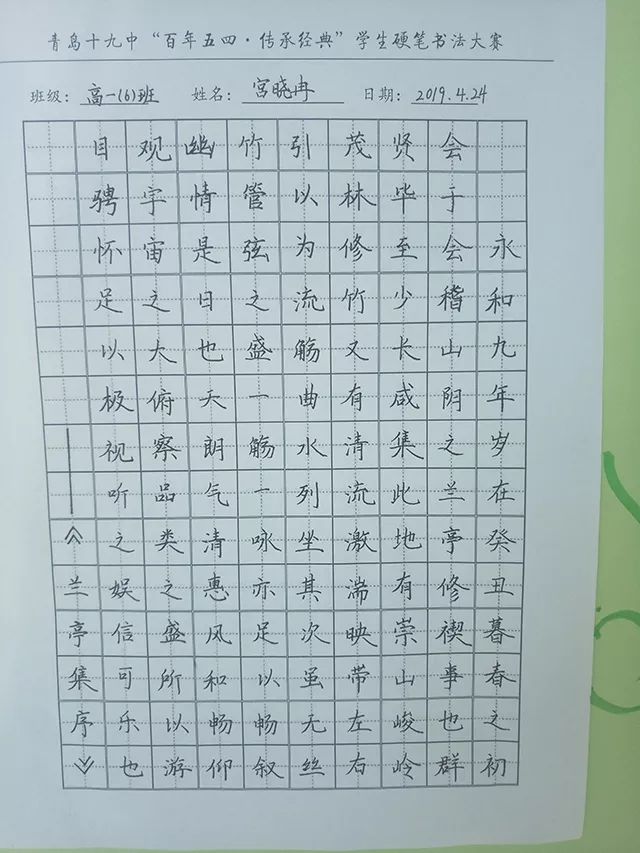 青岛十九中“百年五四·传承经典”学生硬笔书法大赛
班级：高一(6)班 姓名：宫晓冉 日期：2019.4.24
永和九年岁在癸丑暮春之初
会于会稽山阴之兰亭修禊事也群
贤毕至少长咸集此地有崇山峻岭
茂林修竹又有清流激湍映带左右
引以为流觞曲水列坐其次虽无丝
竹管弦之盛一觞一咏亦足以畅叙
幽情是日也天朗气清惠风和畅仰
观宇宙之大俯察品类之盛所以游
目骋怀足以极视听之娱信可乐也
——《兰亭集序》